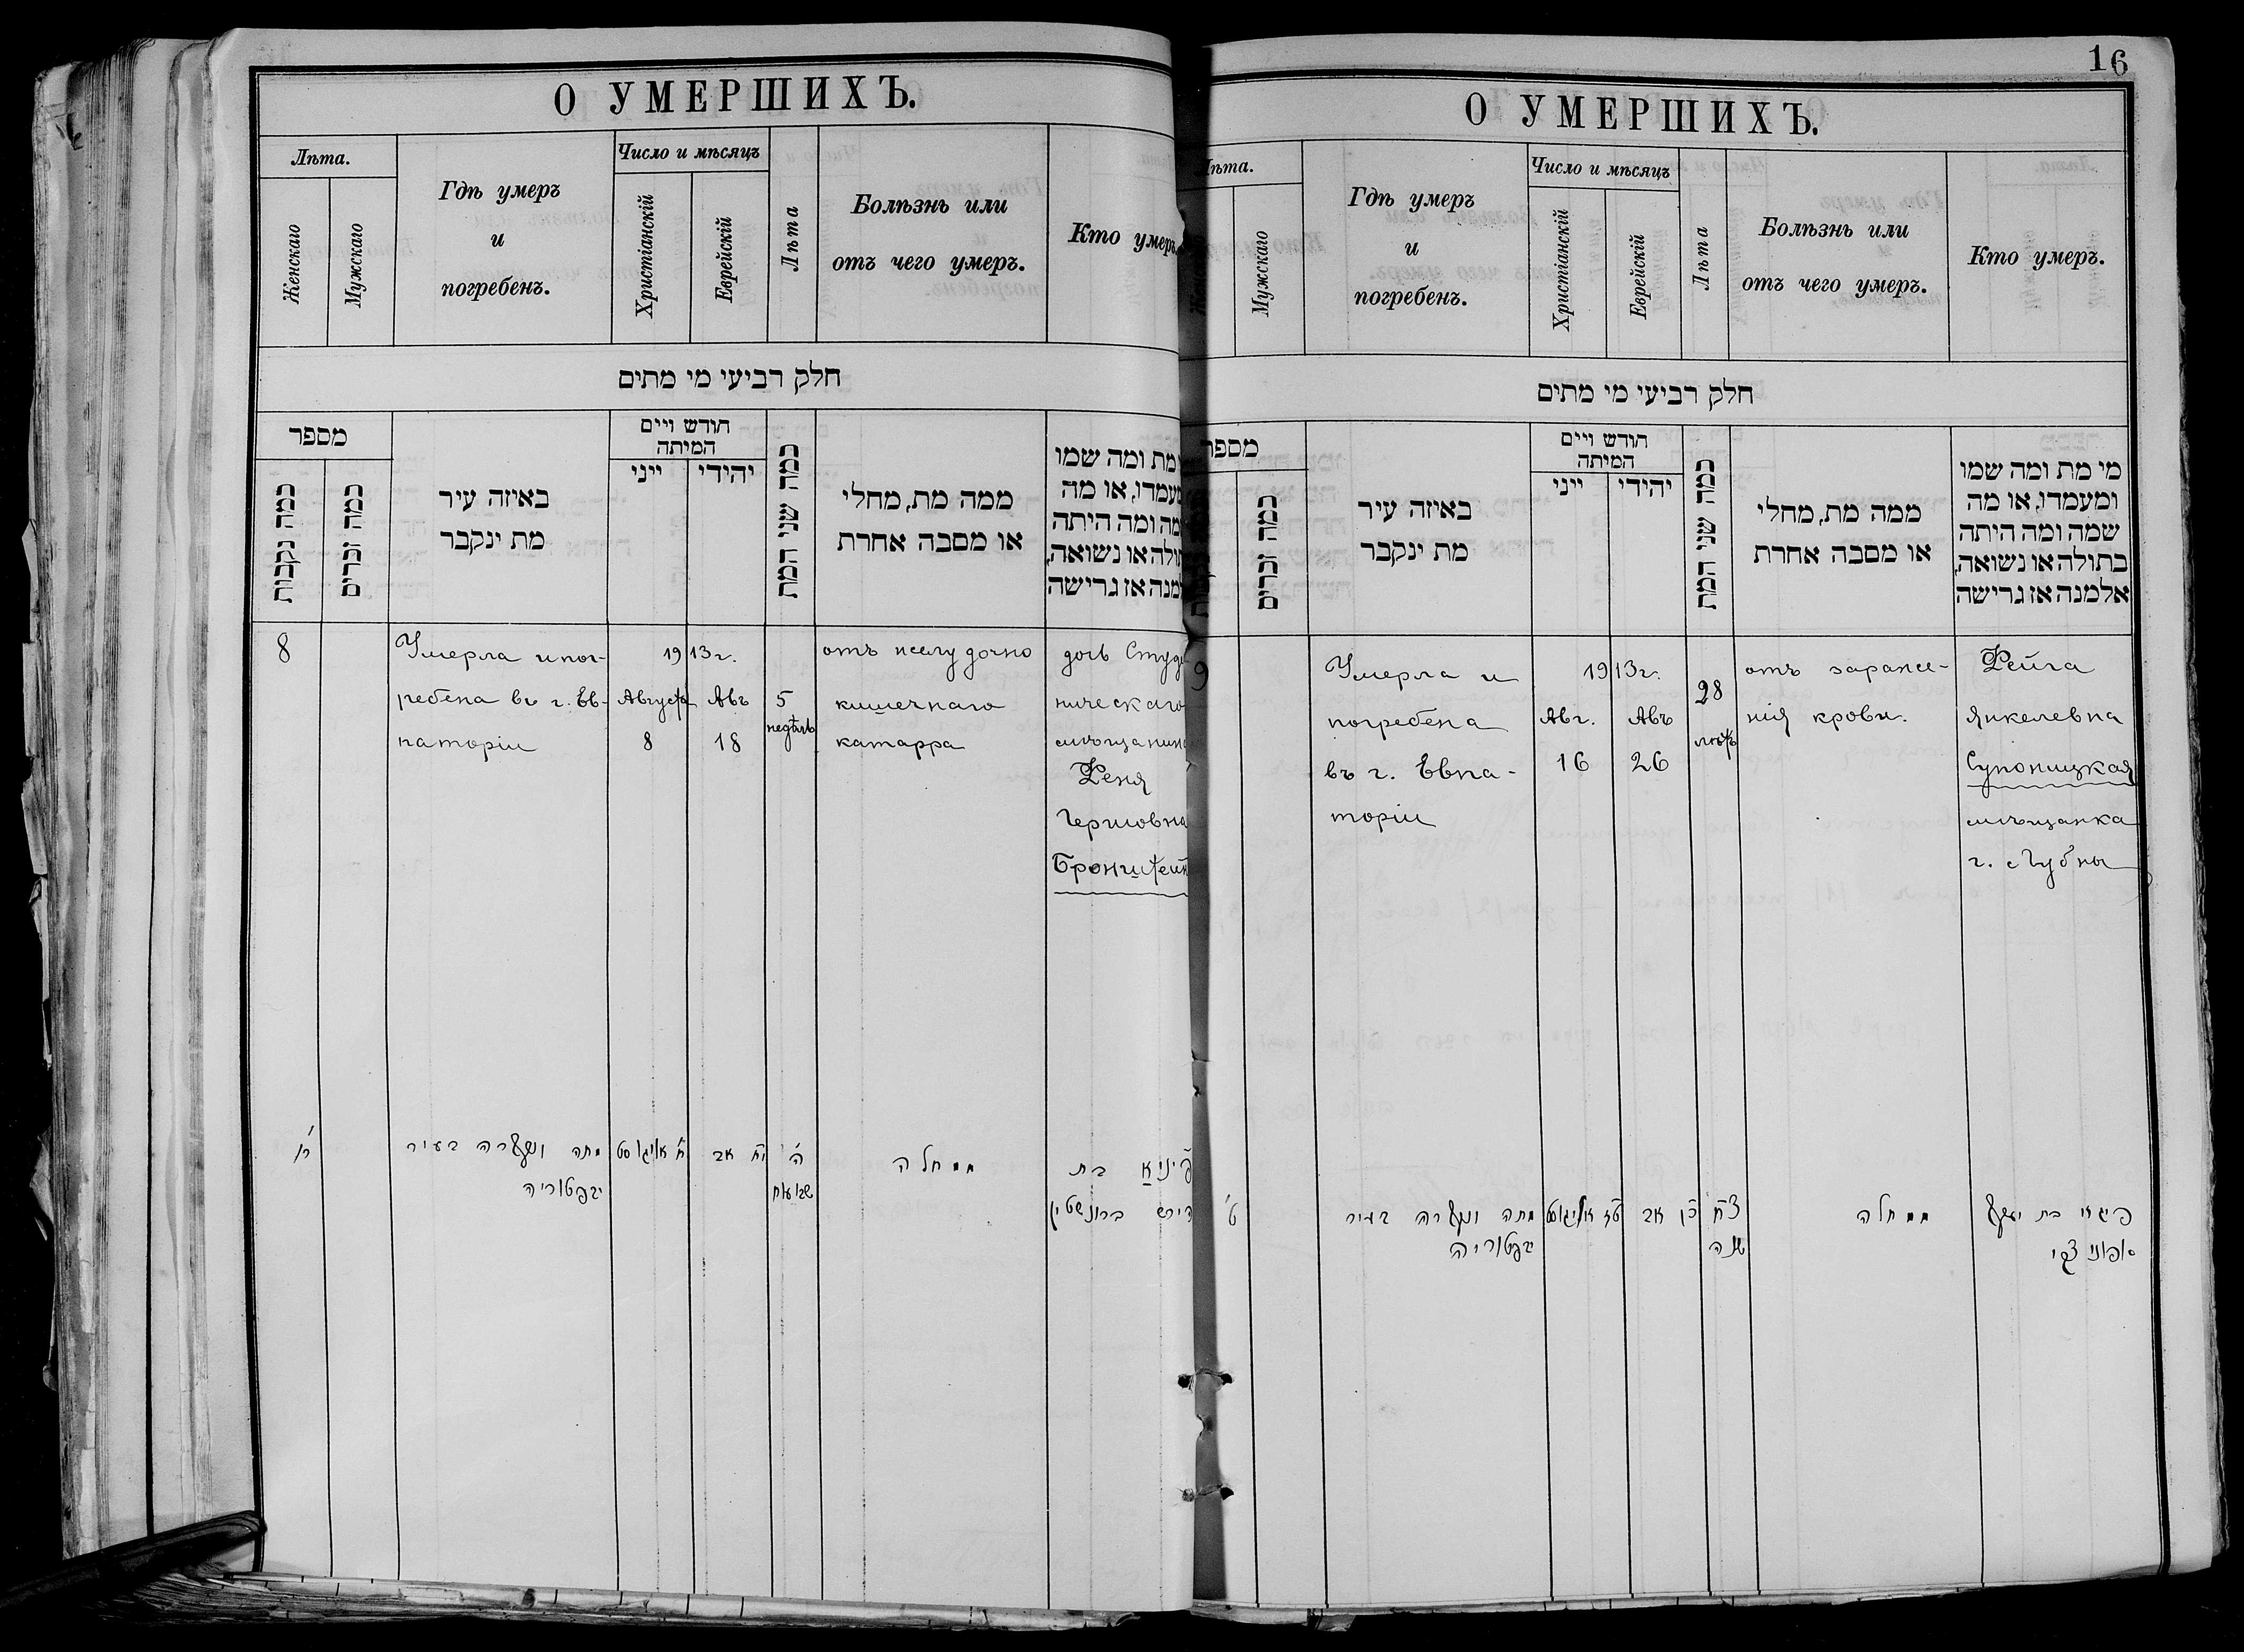 О УМЕРШИХЪ.
Лѣта.
Женскаго
Мужскаго
Гдѣ умеръ
и
погребенъ.
Число и мѣсяцъ
Христіанскій
Еврейскій
Лѣта
Болѣзнь или
отъ чего умеръ.
Кто умеръ
חלק רביעי מי מתים
מספר
כמה נקבות
כמה זכרים
באיזה עיר
מת ינקבר
חודש ויים
המיתה
ייני
יהידי
כמה שני המת
ממה מת, מחלי
או מסבה אחרת
מת ומה שמו
או מה
ומה היתה
או נשואה,
אז גרישה
8
Умерла и пог-
ребена въ г. Ев-
паторіи
1913 г.
Августъ
8
Авъ
18
5
недѣль
отъ желудочно
кишечнаго
катарра
дочь
мѣщанина
Феня
Гершовна
Бронштейн
ח'
מתה ונקברה בעיר
יבפטוריה
ח אויגוסט
יח אב
ה'
שבועות
ממחלה
פיניא בת
הירש ברונשטין
16
О УМЕРШИХЪ.
Лѣта.
Мужскаго
Гдѣ умеръ
и
погребенъ.
Число и мѣсяцъ
Христіанскій
Еврейскій
Лѣта
Болѣзнь или
отъ чего умеръ.
Кто умеръ.
חלק רביעי מי מתים
מספר
כמה זכרים
באיזה עיר
מת ינקבר
חודש ויים
המיתה
ייני
יהידי
כמה שני המת
ממה מת, מחלי
או מסבה אחרת
מי מת ומה שמו
ומעמדו, או מה
שמה ומה היתה
בתולה או נשואה,
אלמנה אז גרישה
9
Умерла и
погребена
въ г. Евпа-
торіи
1913 г.
Авг.
16
Авъ
26
28
лѣтъ
отъ зараже-
нія крови.
Фейга
Янкелевна
Супоницкая
мѣщанка
г. Лубны
ט'
מתה ונקברה בעיר
יבפטוריה
טז אויגוסט
כו אב
שנה
ממחלה
פיגא בת יעקב
סופוניצקי